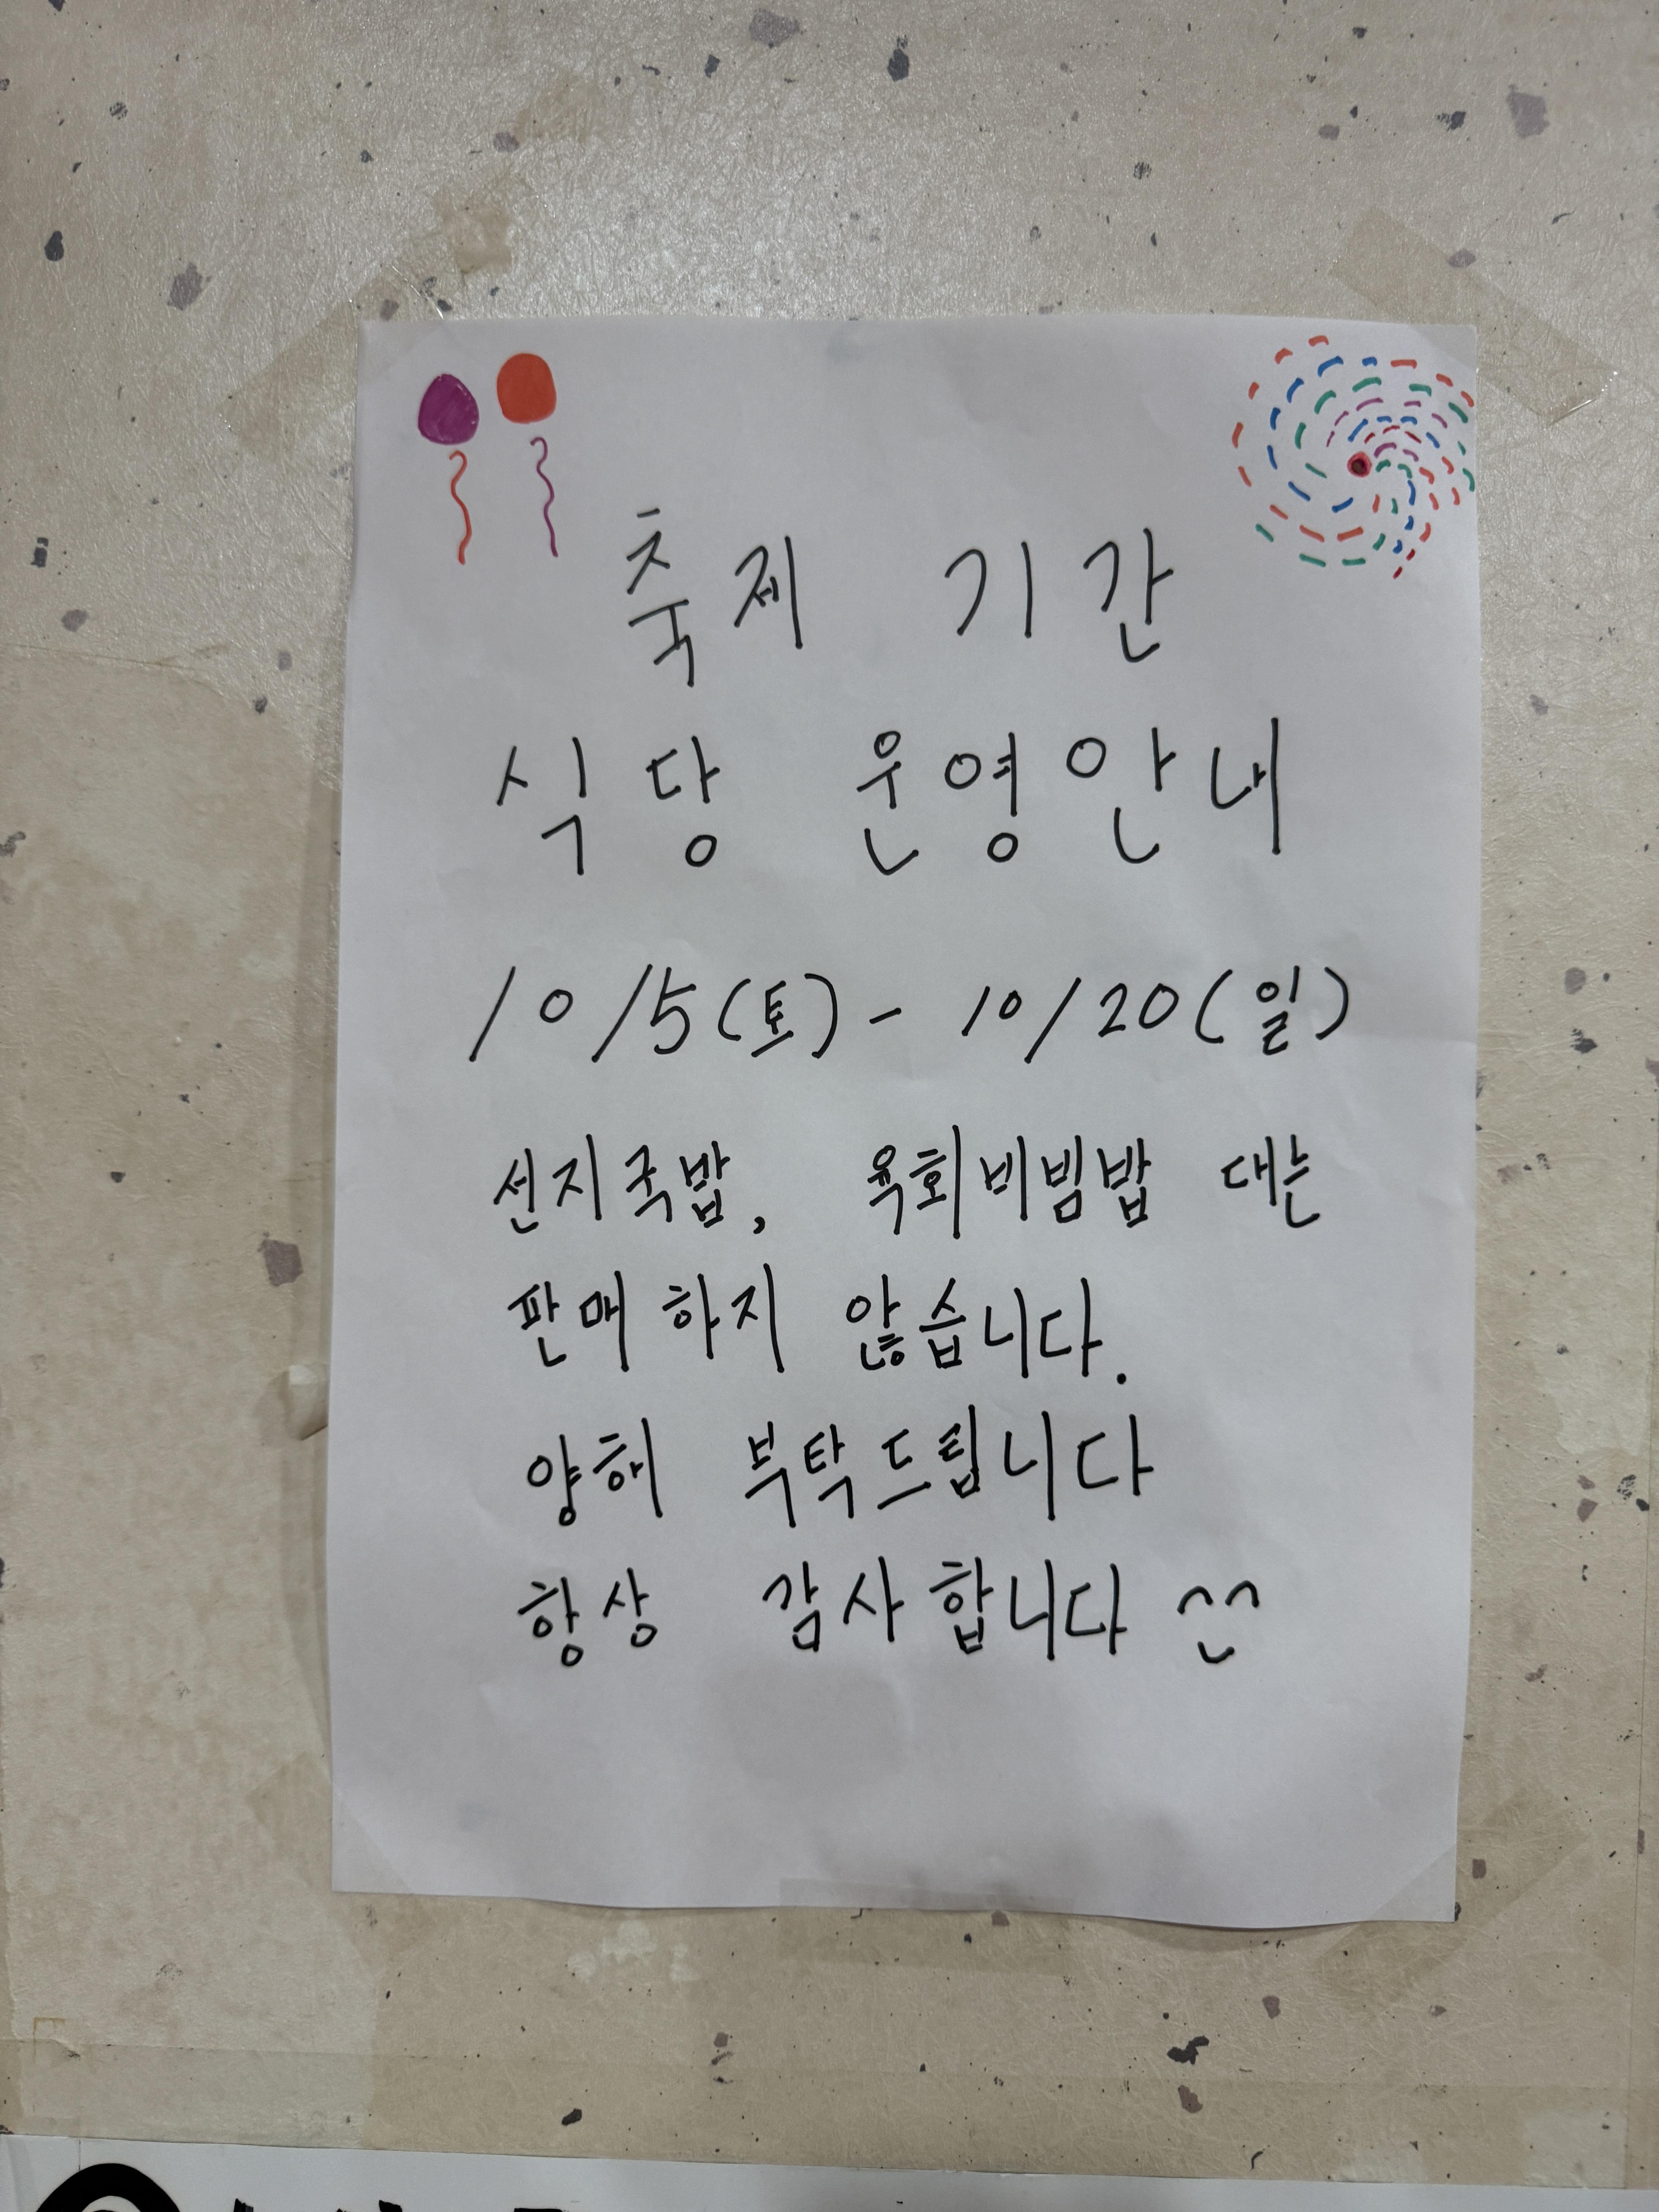 축제 기간
식당 운영안내
10/5(토) - 10/20(일)
선지국밥, 육회비빔밥 대는
판매하지 않습니다.
양해 부탁드립니다
항상 감사합니다 ^^